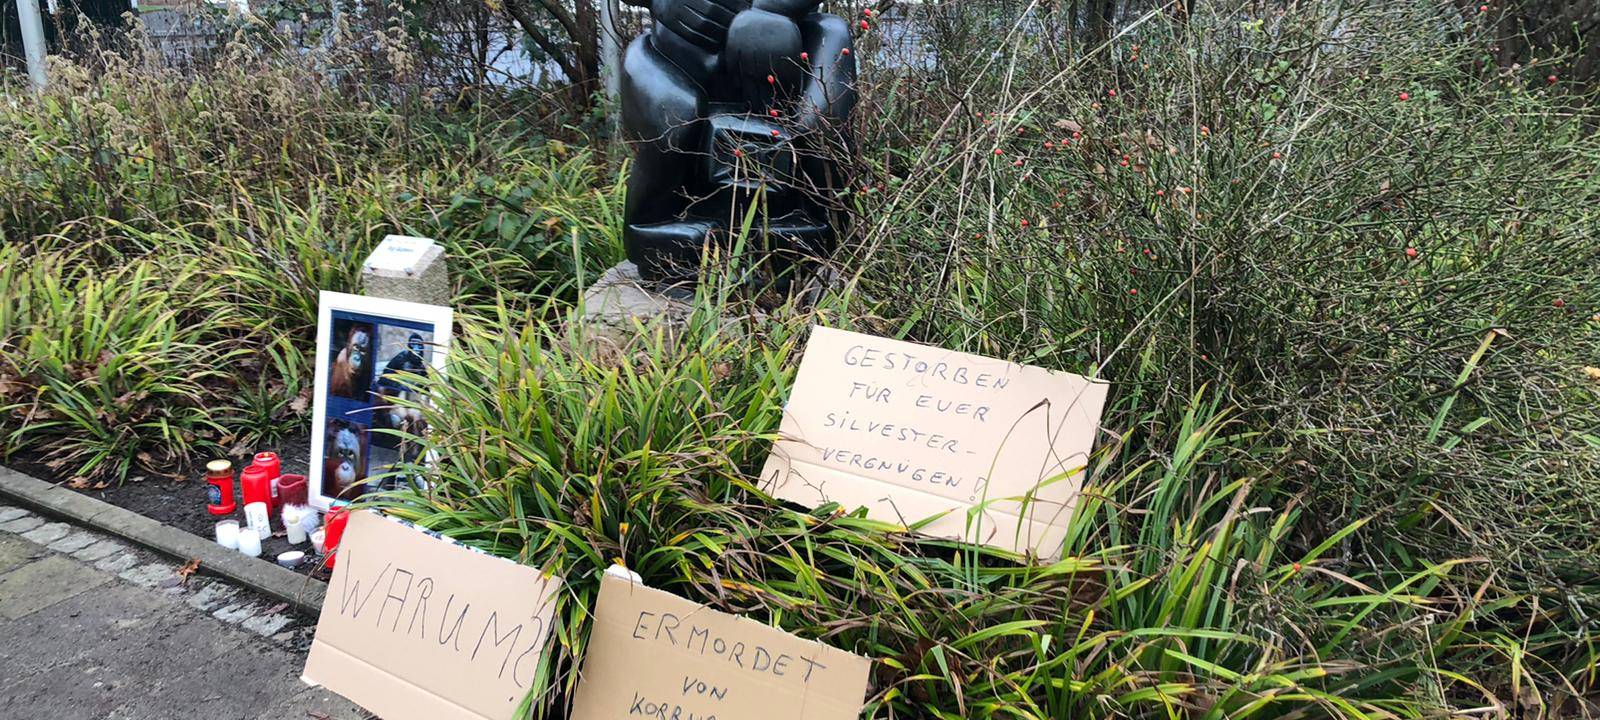 GESTORBEN
FÜR EUER
SILVESTER-
VERGNÜGEN!
WARUM?
ERMORDET
VON